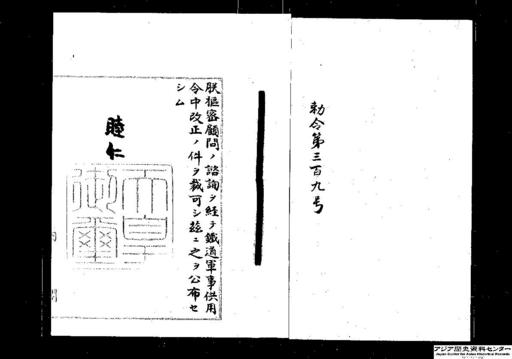 勅令第三百九号
朕樞密顧問ノ諮詢ヲ経テ鐵道軍事供用
令中改正ノ件ヲ裁可シ茲ニ之ヲ公布セ
シム
睦仁
天皇御璽
アジア歴史資料センター
Japan Center for Asian Historical Records